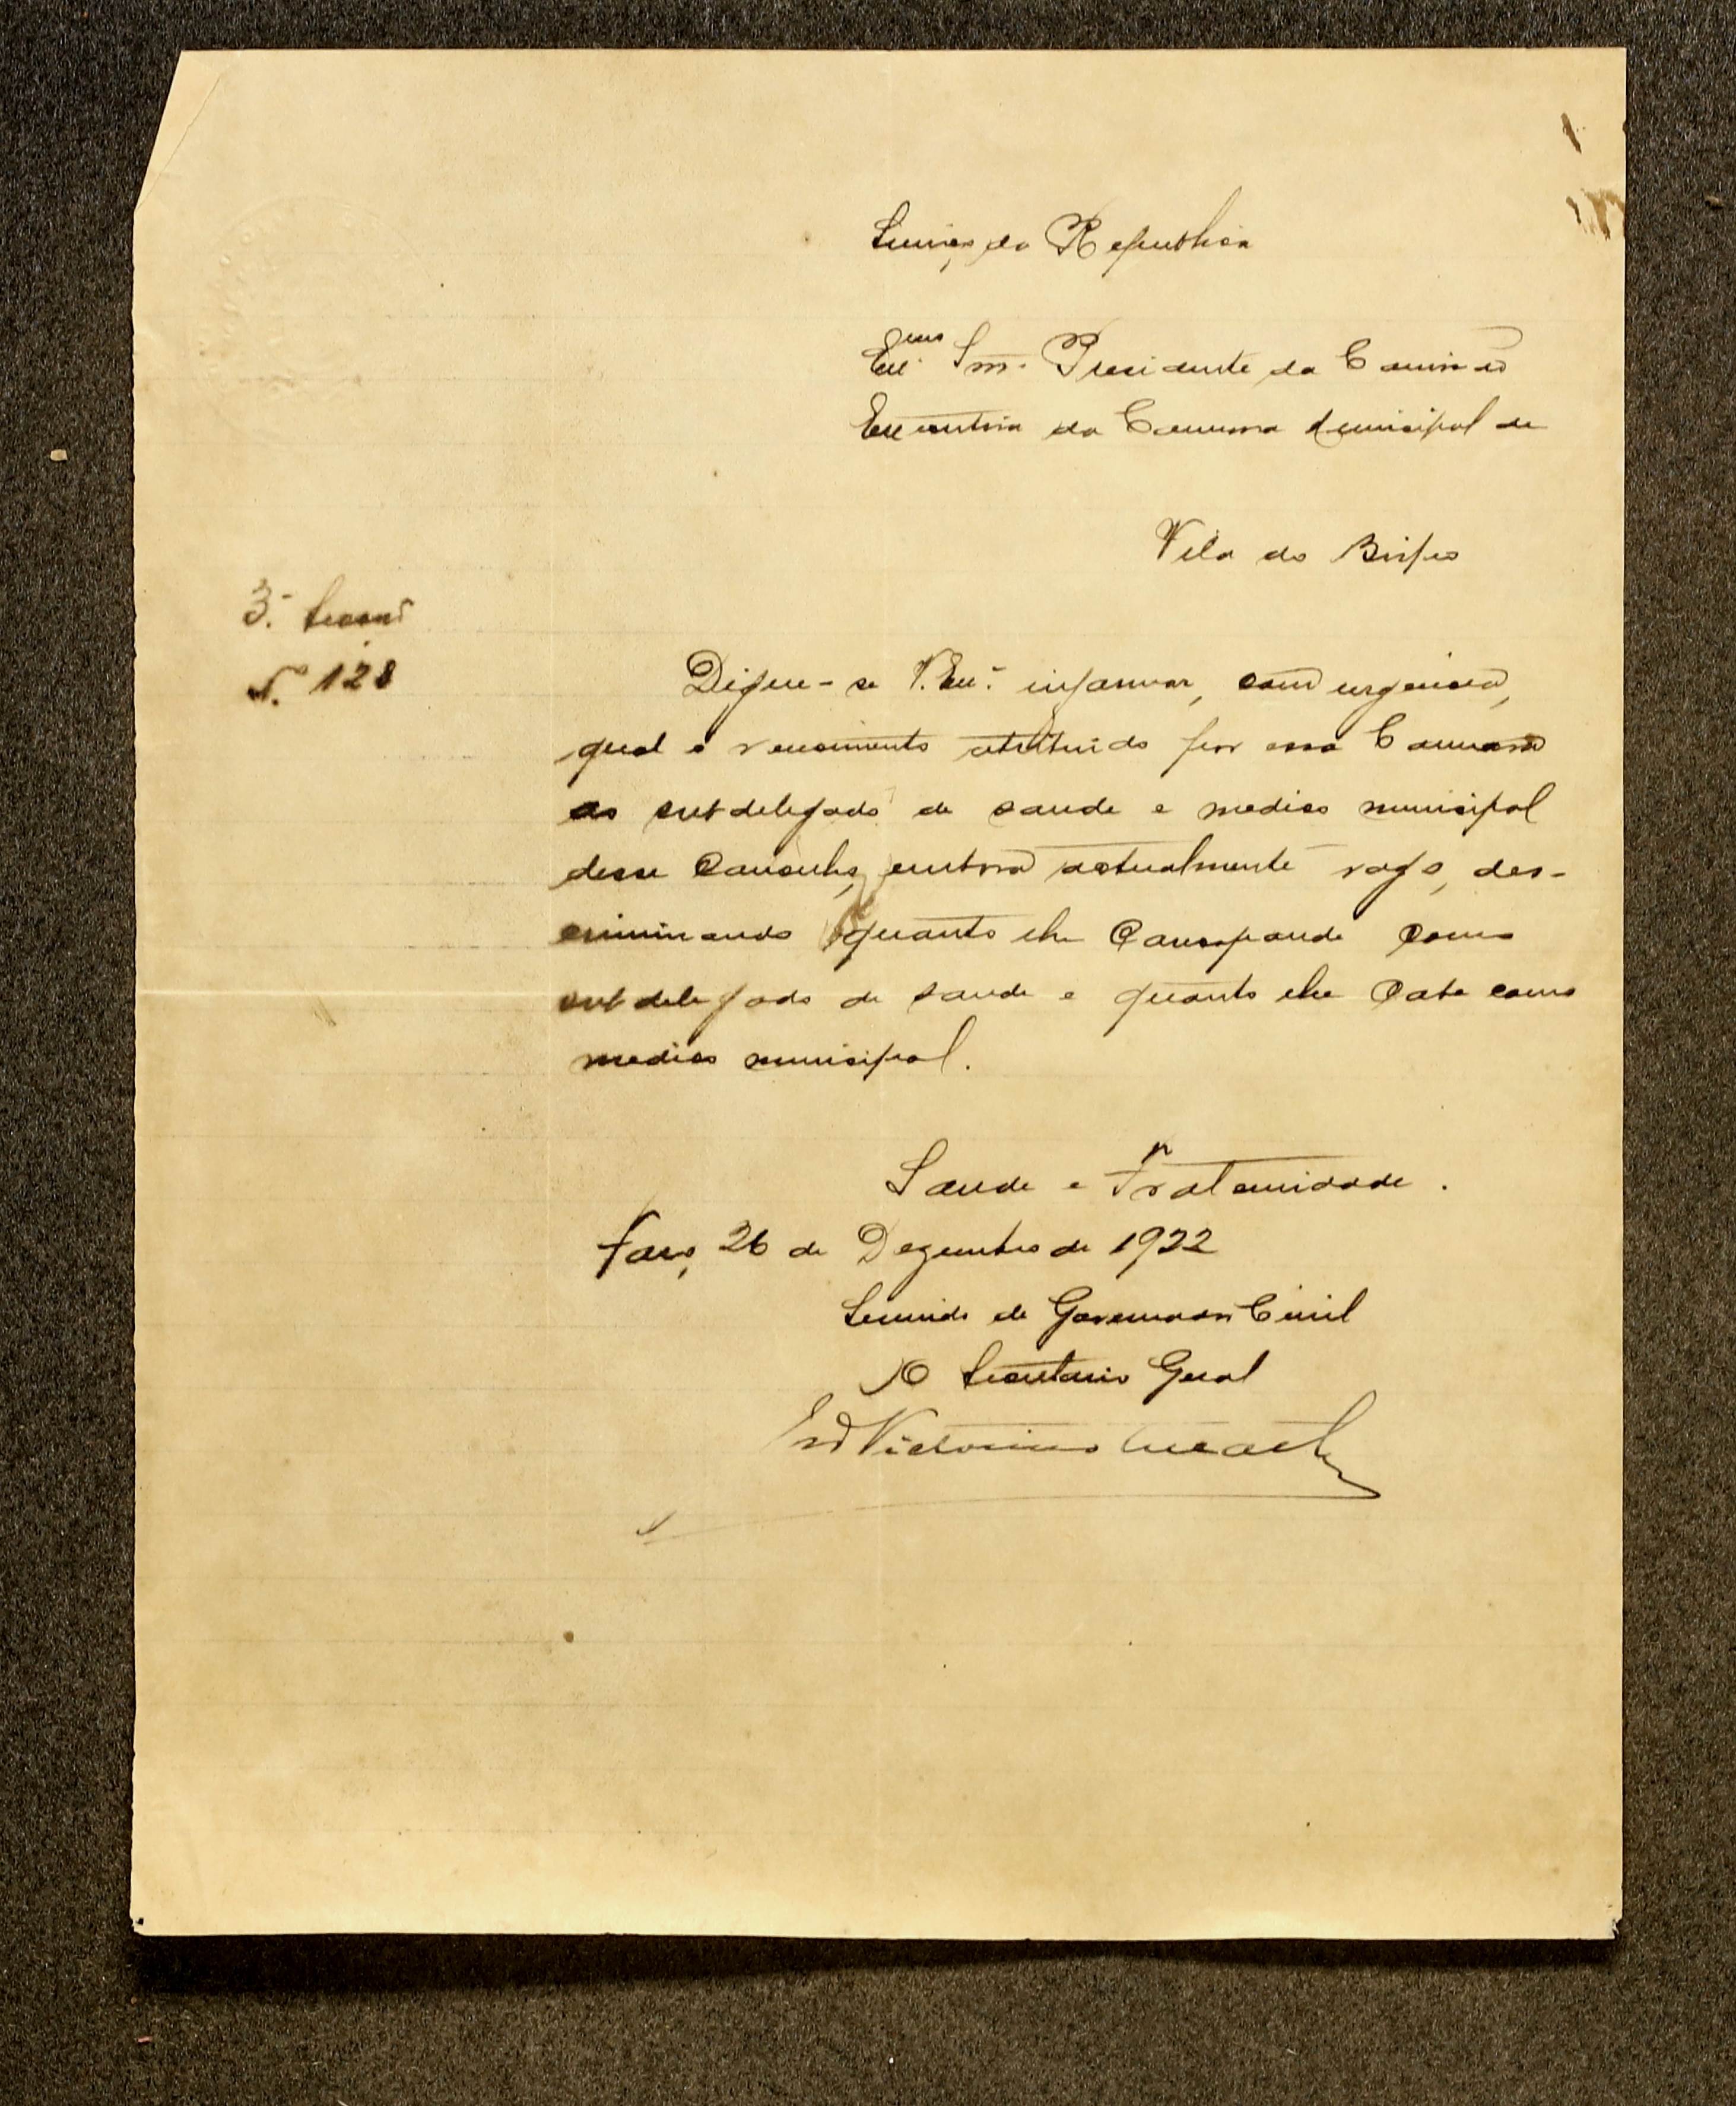 Serviço da Republica
Exmo Snr. Presidente da Comissão
Executiva da Camara Municipal de
Vila do Bispo
3.ª Secção
N.º 128
Digne-se V. Ex.ª informar, com urgencia,
qual o vencimento atribuido por essa Camara
ao subdelegado de saude e medico municipal
desse Concelho, embora actualmente vago, des-
criminando quanto lhe corresponde como
subdelegado de saude e quanto lhe cabe como
medico municipal.
Saude e Fraternidade.
Faro, 26 de Dezembro de 1922
Servindo de Governador Civil
O Secretario Geral
Victorino